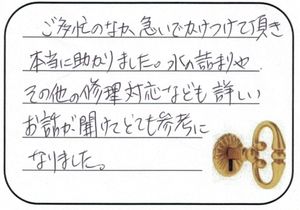 ご多忙のなか、急いでかけつけて頂き
本当に助かりました。水の詰まりや
その他の修理対応なども詳しい
お話が聞けてとても参考に
なりました。